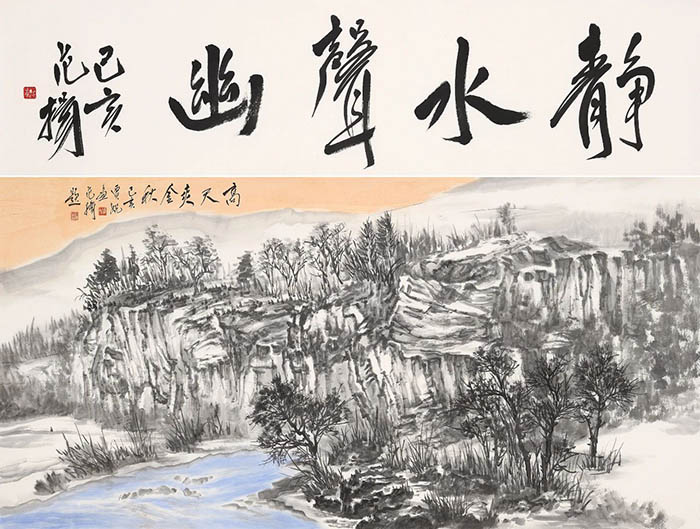 静水聲幽
己亥
范揚
高天爽金秋
己亥
范揚
題